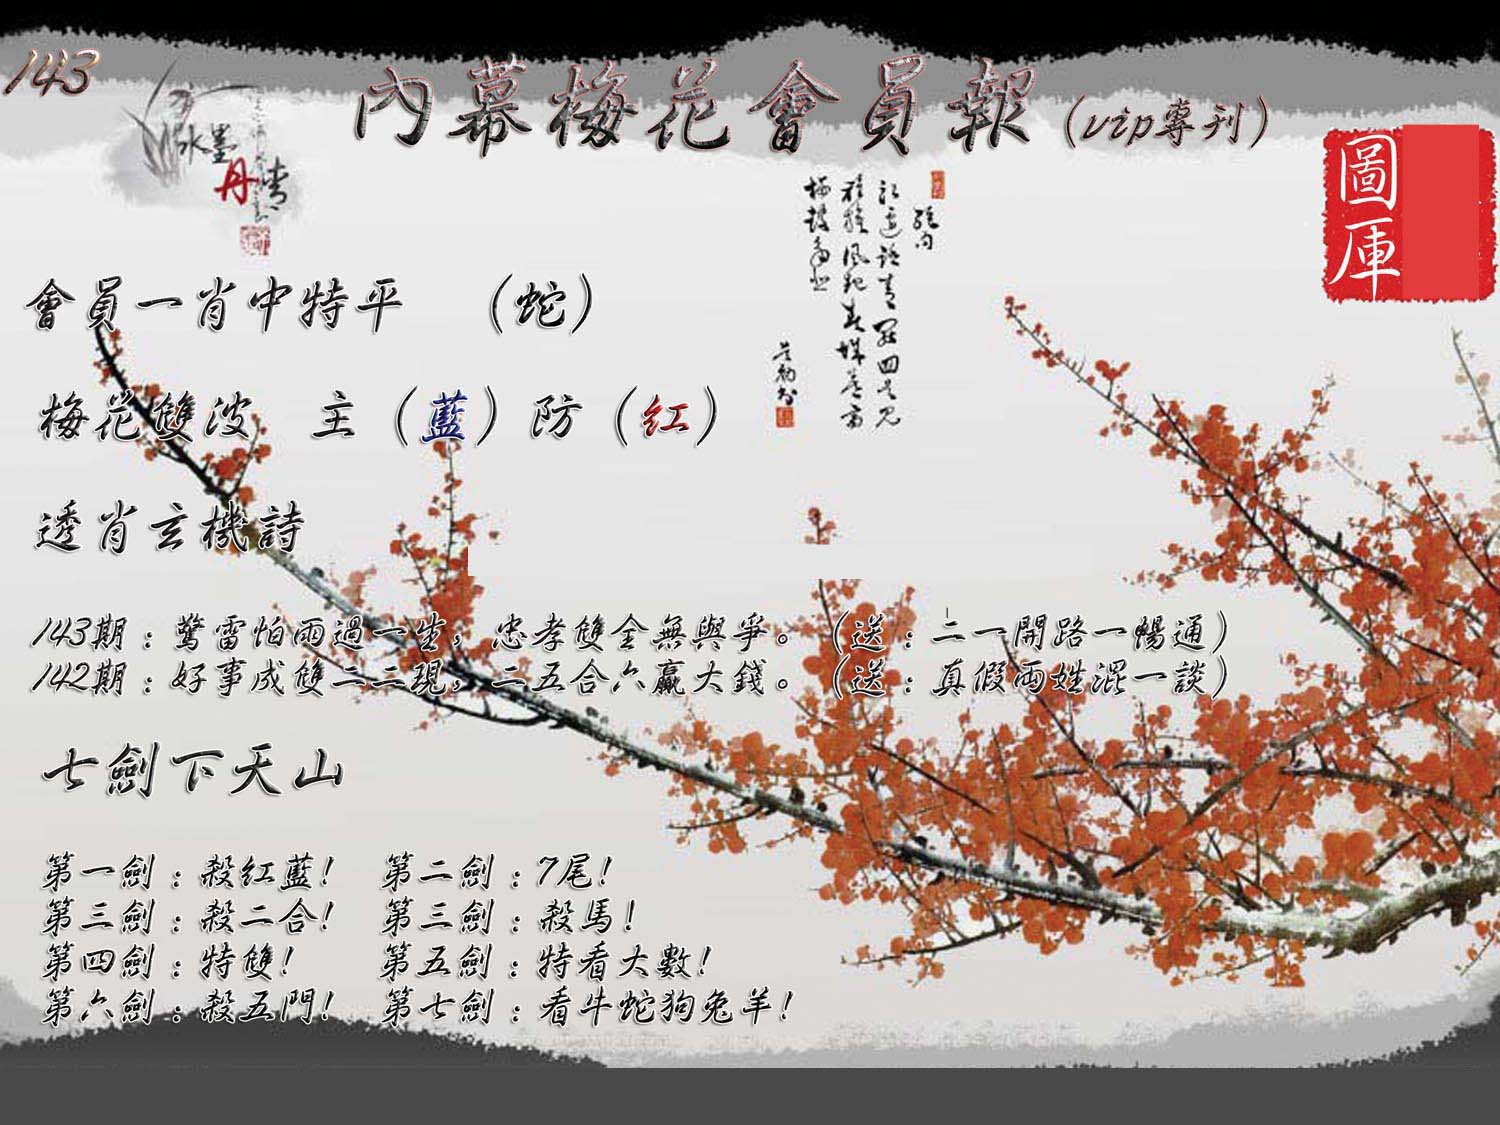 143
內幕梅花會員報(vip專刊)
水墨
丹青
圖庫
會員一肖中特平 (蛇)
梅花雙波 主(藍)防(紅)
透肖玄機詩
143期:驚雷怕雨過一生,忠孝雙全無與爭。(送:二一開路一暢通)
142期:好事成雙二二現,二五合六贏大錢。(送:真假兩姓混一談)
七劍下天山
第一劍:殺紅藍! 第二劍:7尾!
第三劍:殺二合! 第三劍:殺馬!
第四劍:特雙! 第五劍:特看大數!
第六劍:殺五門! 第七劍:看牛蛇狗兔羊!